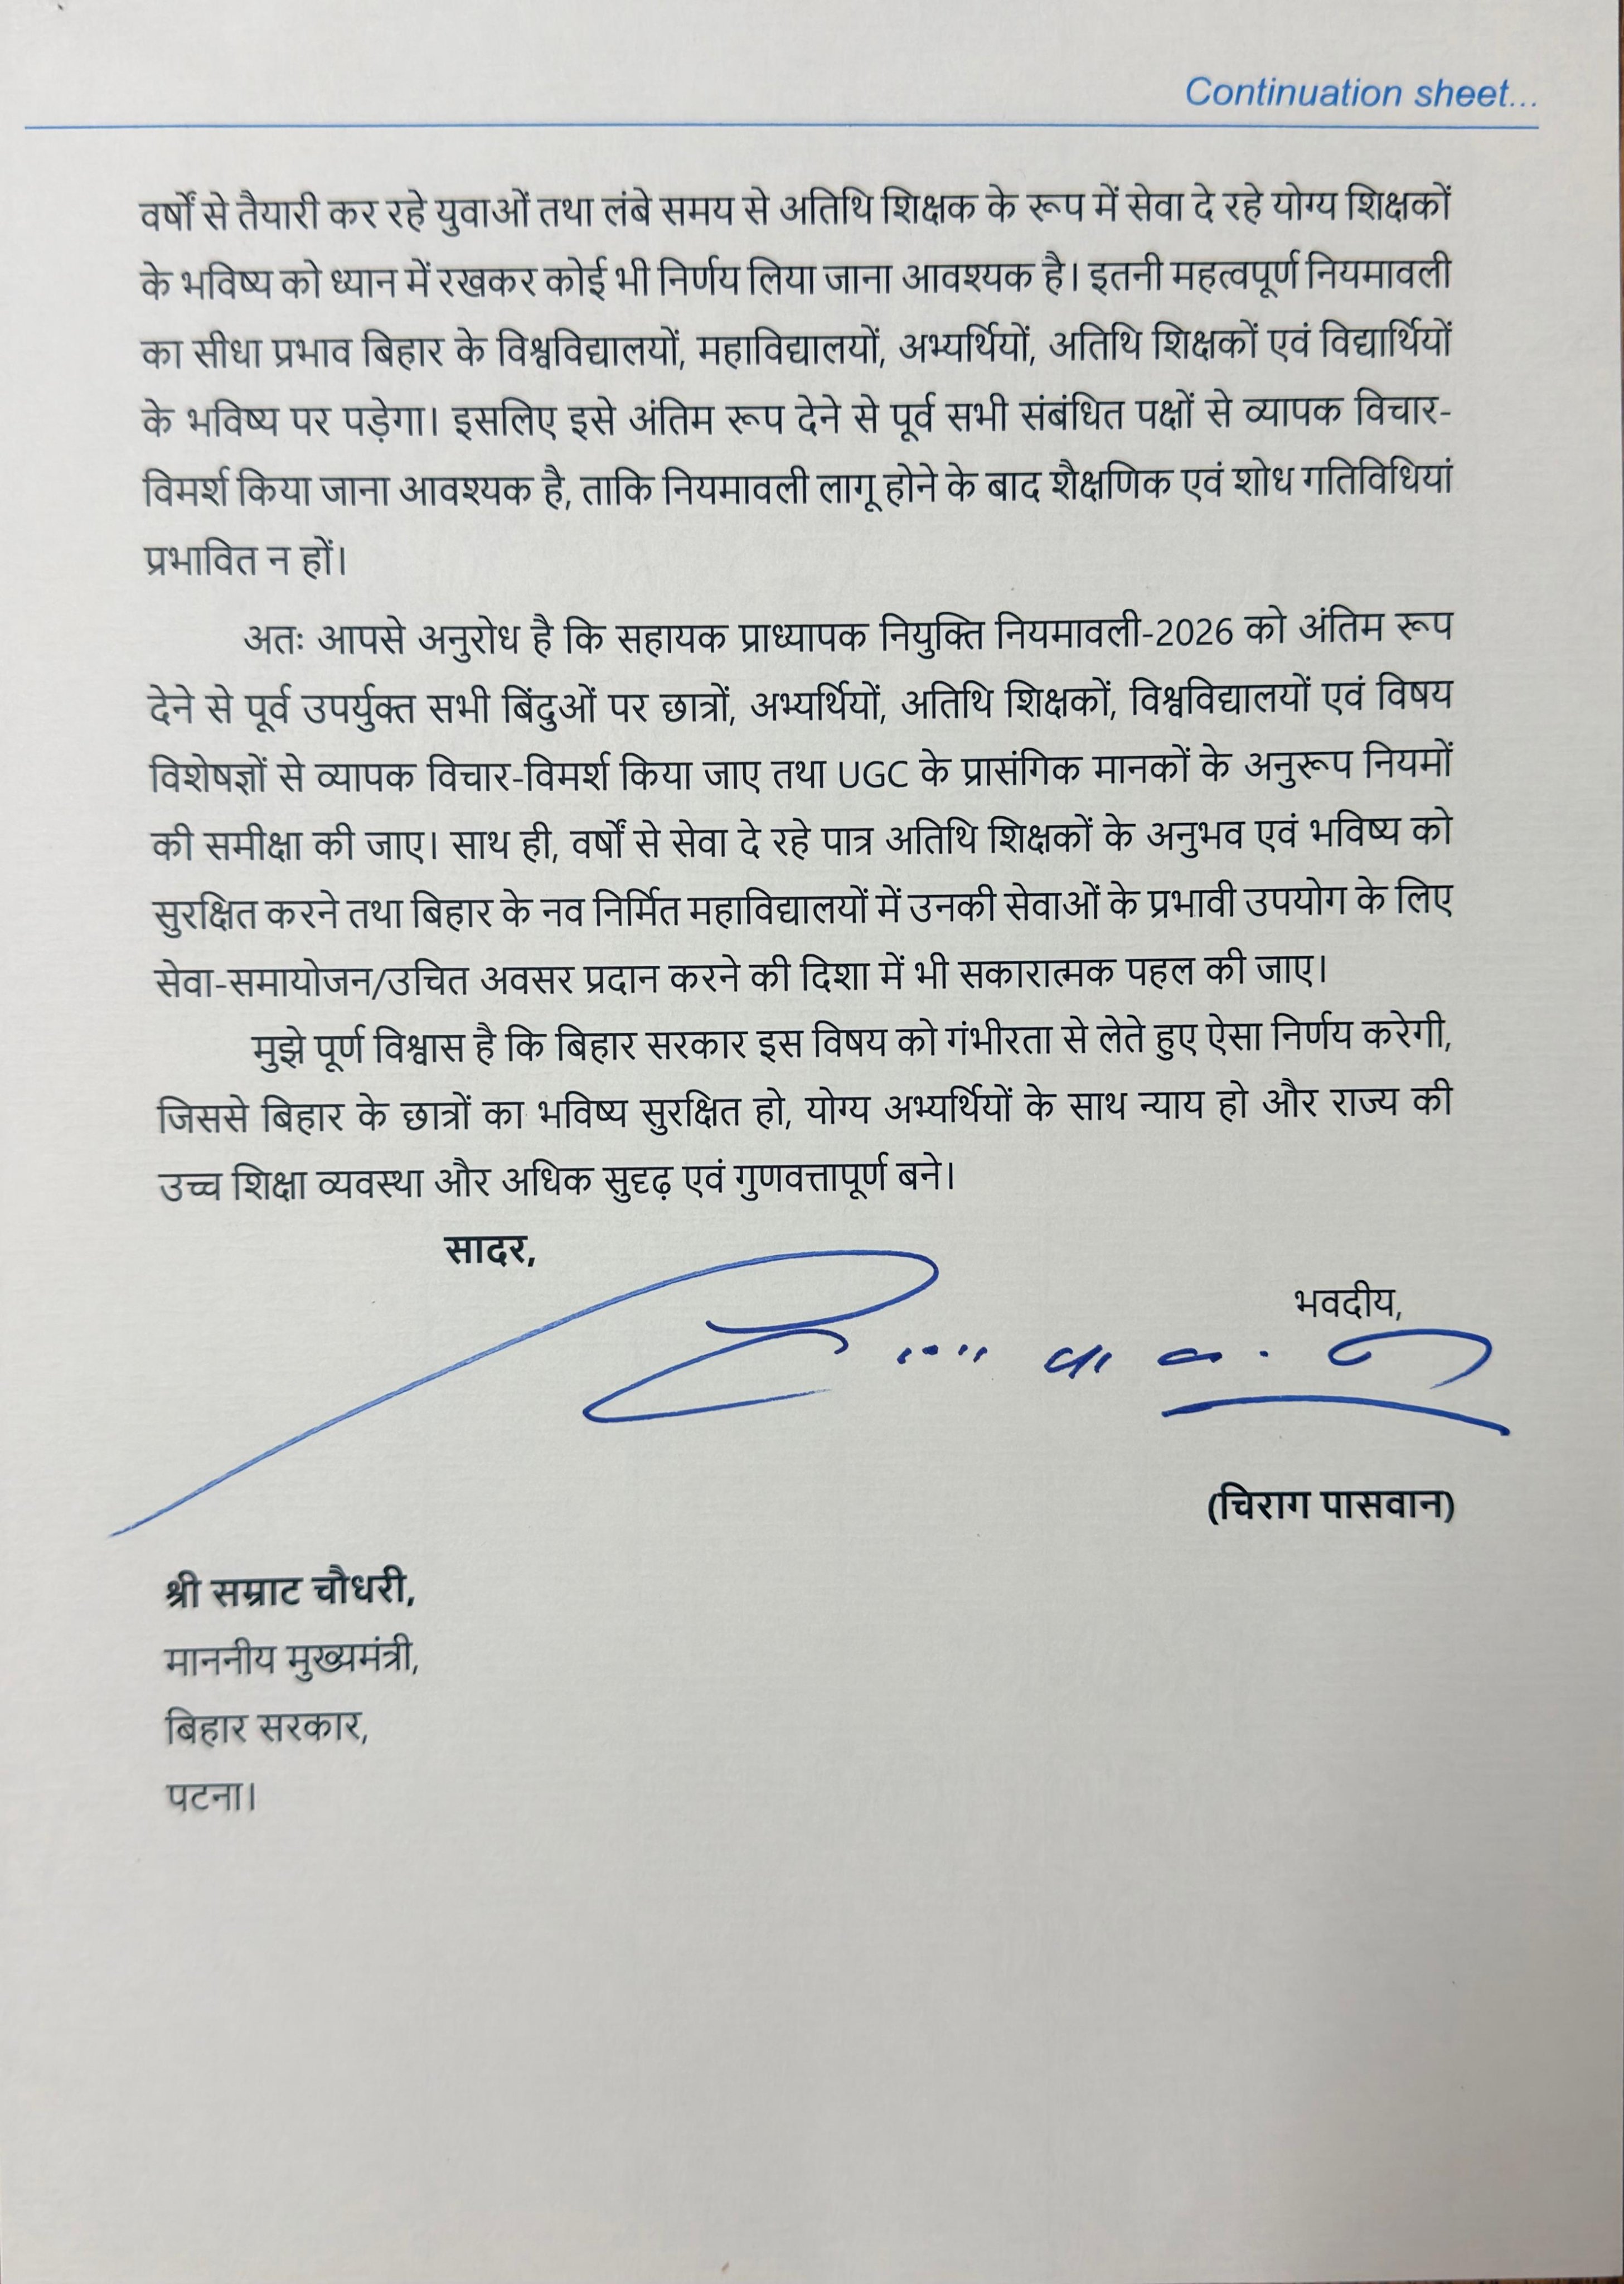 Continuation sheet...
वर्षों से तैयारी कर रहे युवाओं तथा लंबे समय से अतिथि शिक्षक के रूप में सेवा दे रहे योग्य शिक्षकों
के भविष्य को ध्यान में रखकर कोई भी निर्णय लिया जाना आवश्यक है। इतनी महत्वपूर्ण नियमावली
का सीधा प्रभाव बिहार के विश्वविद्यालयों, महाविद्यालयों, अभ्यर्थियों, अतिथि शिक्षकों एवं विद्यार्थियों
के भविष्य पर पड़ेगा। इसलिए इसे अंतिम रूप देने से पूर्व सभी संबंधित पक्षों से व्यापक विचार-
विमर्श किया जाना आवश्यक है, ताकि नियमावली लागू होने के बाद शैक्षणिक एवं शोध गतिविधियां
प्रभावित न हों।
अतः आपसे अनुरोध है कि सहायक प्राध्यापक नियुक्ति नियमावली-2026 को अंतिम रूप
देने से पूर्व उपर्युक्त सभी बिंदुओं पर छात्रों, अभ्यर्थियों, अतिथि शिक्षकों, विश्वविद्यालयों एवं विषय
विशेषज्ञों से व्यापक विचार-विमर्श किया जाए तथा UGC के प्रासंगिक मानकों के अनुरूप नियमों
की समीक्षा की जाए। साथ ही, वर्षों से सेवा दे रहे पात्र अतिथि शिक्षकों के अनुभव एवं भविष्य को
सुरक्षित करने तथा बिहार के नव निर्मित महाविद्यालयों में उनकी सेवाओं के प्रभावी उपयोग के लिए
सेवा-समायोजन/उचित अवसर प्रदान करने की दिशा में भी सकारात्मक पहल की जाए।
मुझे पूर्ण विश्वास है कि बिहार सरकार इस विषय को गंभीरता से लेते हुए ऐसा निर्णय करेगी,
जिससे बिहार के छात्रों का भविष्य सुरक्षित हो, योग्य अभ्यर्थियों के साथ न्याय हो और राज्य की
उच्च शिक्षा व्यवस्था और अधिक सुदृढ़ एवं गुणवत्तापूर्ण बने।
सादर,
भवदीय,
(चिराग पासवान)
श्री सम्राट चौधरी,
माननीय मुख्यमंत्री,
बिहार सरकार,
पटना।